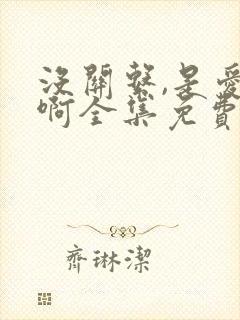 没關繫,是愛
啊全集免費
齊琳潔